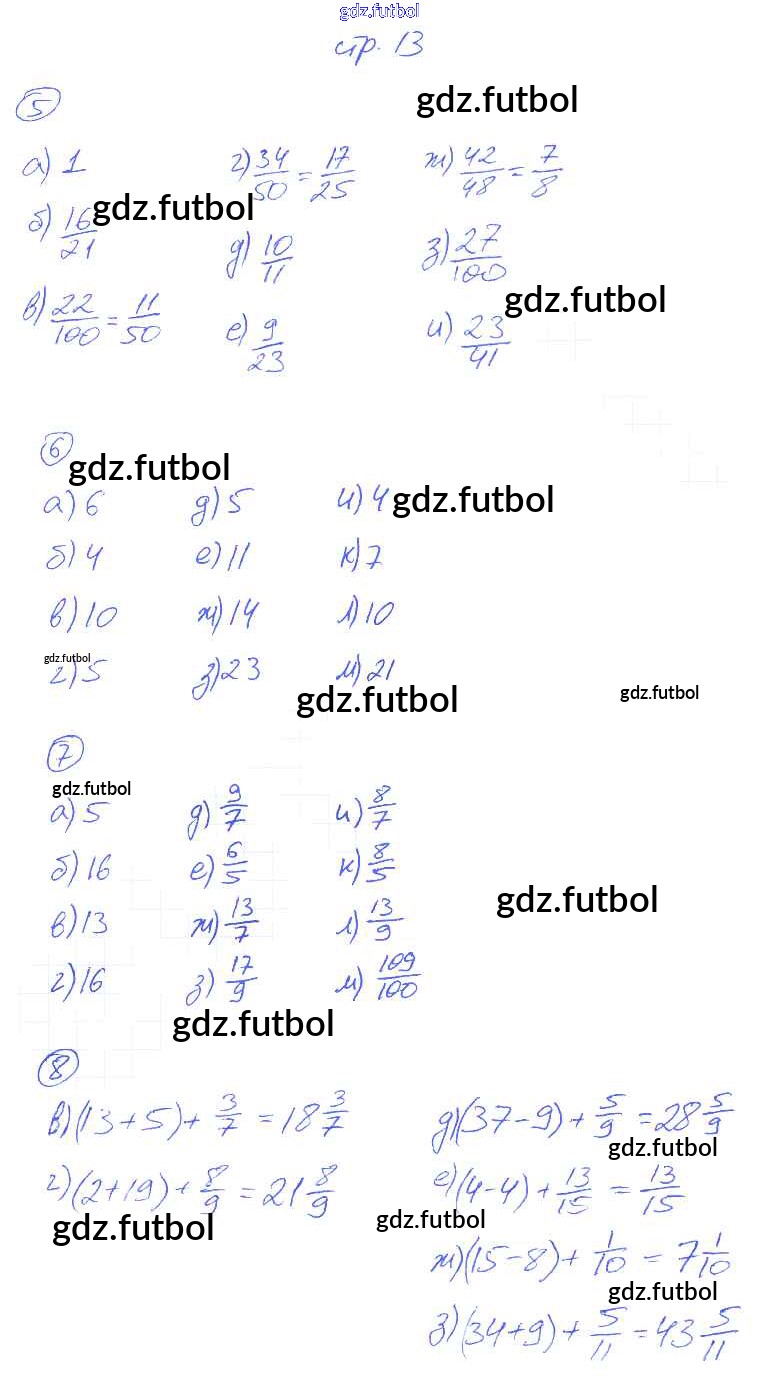 gdz.futbol
стр. 13
⑤ gdz.futbol
а) 1 г) 34/50 = 17/25 ж) 42/48 = 7/8
б) 16/21 gdz.futbol д) 10/11 з) 27/100
gdz.futbol
в) 22/100 = 11/50 е) 9/23 и) 23/41
⑥
gdz.futbol
а) 6 д) 5 и) 4 gdz.futbol
б) 4 е) 11 к) 7
в) 10 ж) 14 л) 10
gdz.futbol
г) 5 з) 23 м) 21
gdz.futbol gdz.futbol
⑦
gdz.futbol
а) 5 д) 9/7 и) 8/7
б) 16 е) 6/5 к) 8/5
gdz.futbol
в) 13 ж) 13/7 л) 13/9
г) 16 з) 17/9 м) 109/100
gdz.futbol
⑧
в) (13+5) + 3/7 = 18 3/7 д) (37-9) + 5/9 = 28 5/9
gdz.futbol
г) (2+19) + 8/9 = 21 8/9 е) (4-4) + 13/15 = 13/15
gdz.futbol gdz.futbol
ж) (15-8) + 1/10 = 7 1/10
gdz.futbol
з) (34+9) + 5/11 = 43 5/11